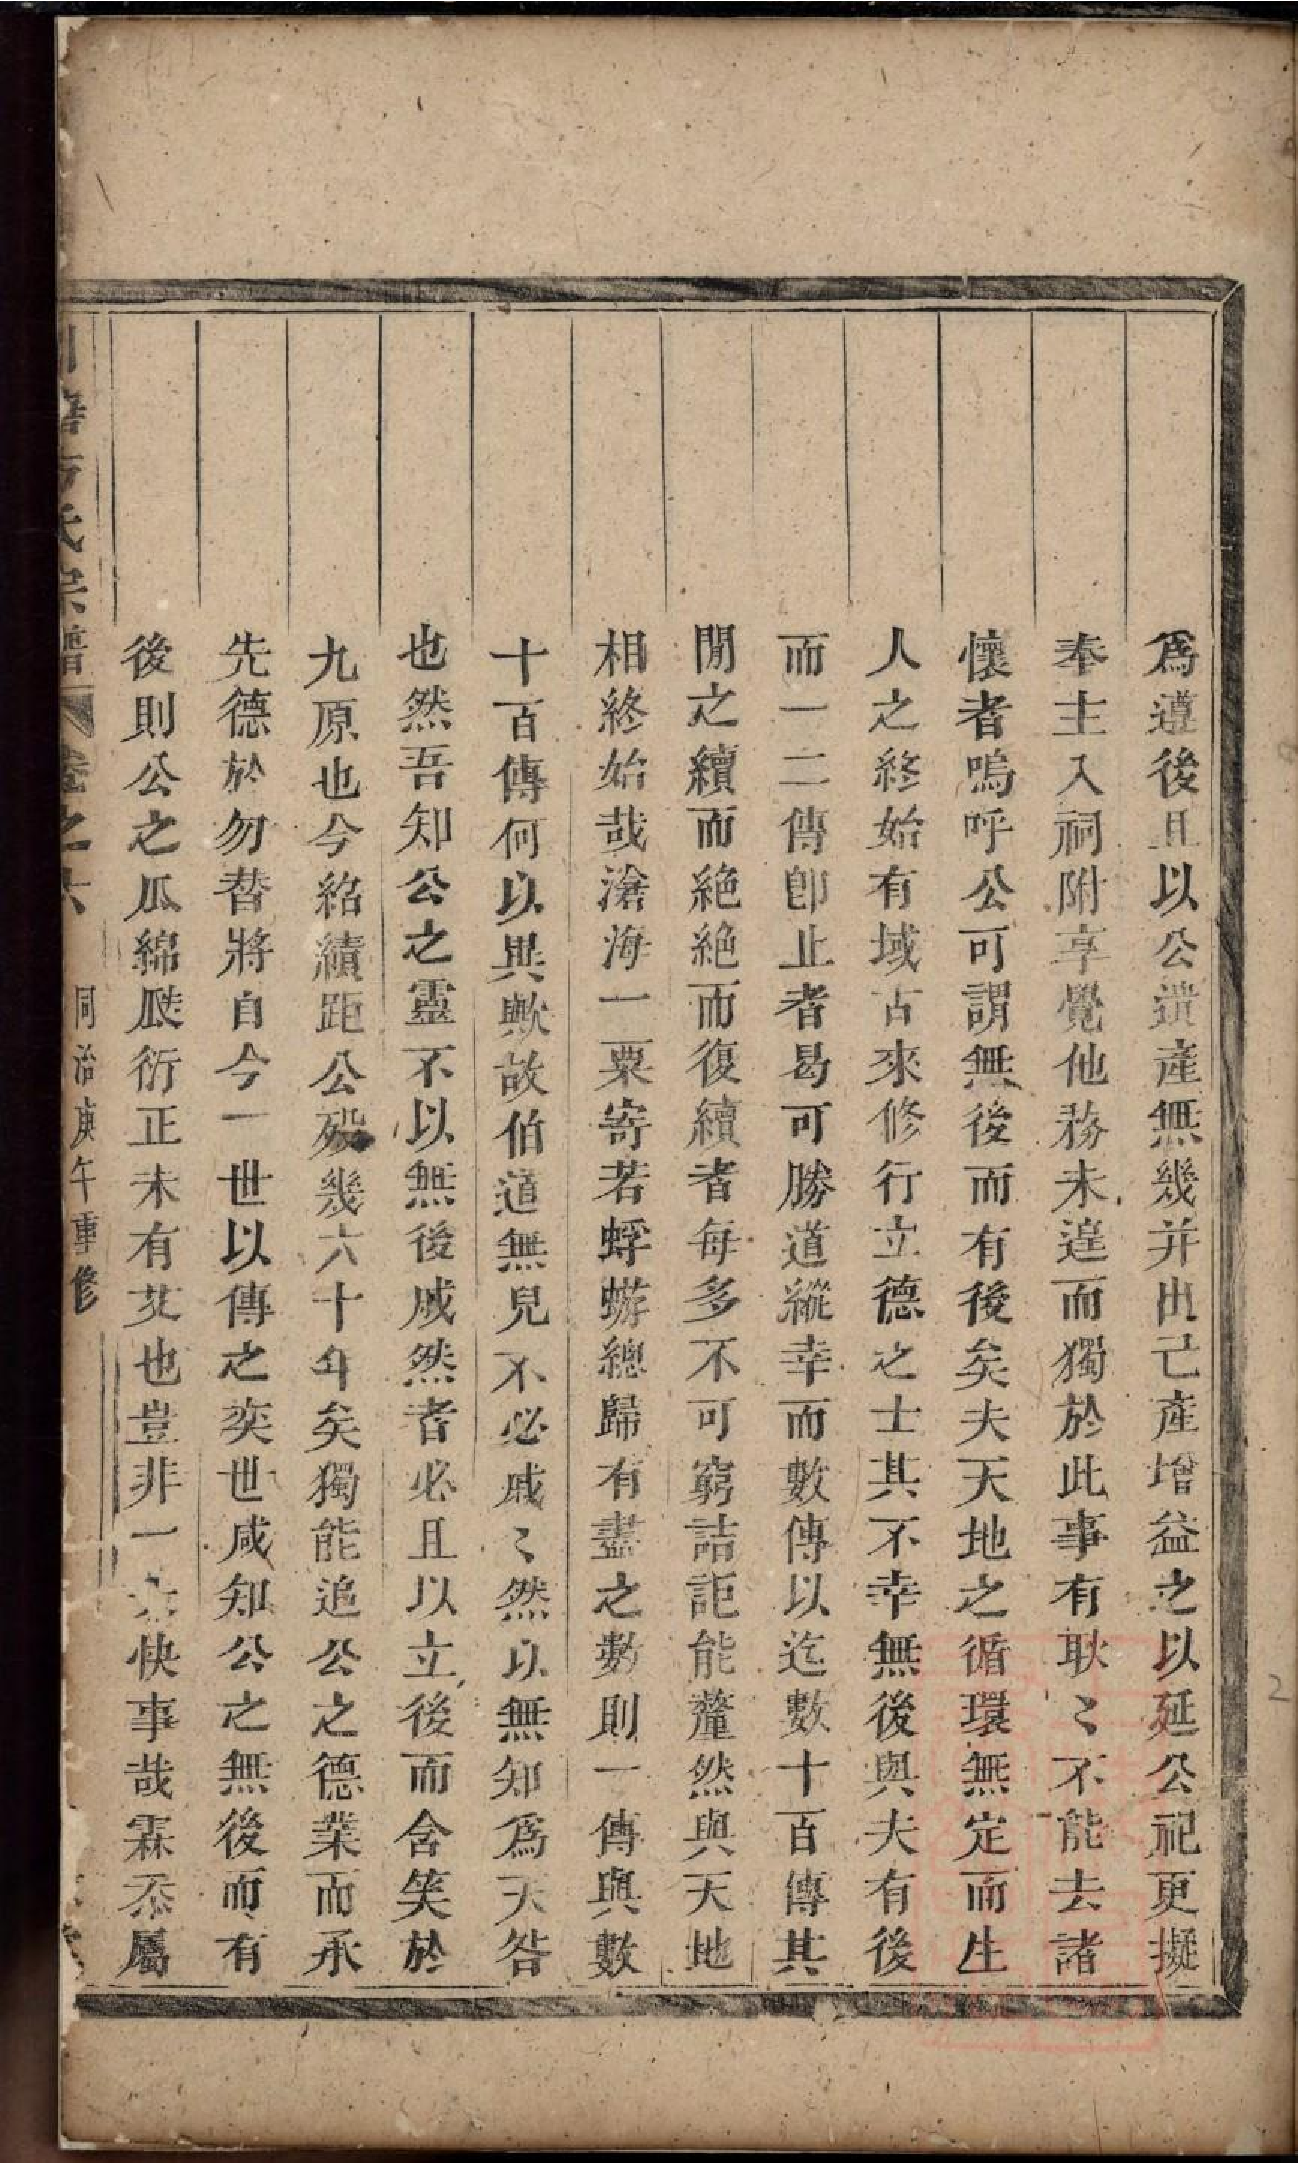 爲遵後且以公遺產無幾并出己產增益之以延公祀更擬
奉主入祠附享覺他務未遑而獨於此事有耿〻不能去諸
懷者嗚呼公可謂無後而有後矣夫天地之循環無定而生
人之終始有域古來修行立德之士其不幸無後與夫有後
而一二傳卽止者曷可勝道縱幸而數傳以迄數十百傳其
閒之續而絕絕而復續者每多不可窮詰詎能釐然與天地
相終始哉滄海一粟寄若蜉蝣總歸有盡之數則一傳與數
十百傳何以異歟故伯道無兒不必戚〻然以無知爲天咎
也然吾知公之靈不以無後戚然者必且以立後而含笑於
九原也今紹續距公歿幾六十年矣獨能追公之德業而承
先德於勿替將自今一世以傳之奕世咸知公之無後而有
後則公之瓜綿瓞衍正未有艾也豈非一大快事哉霖忝屬
方氏宗譜 卷之六 同治庚午重修